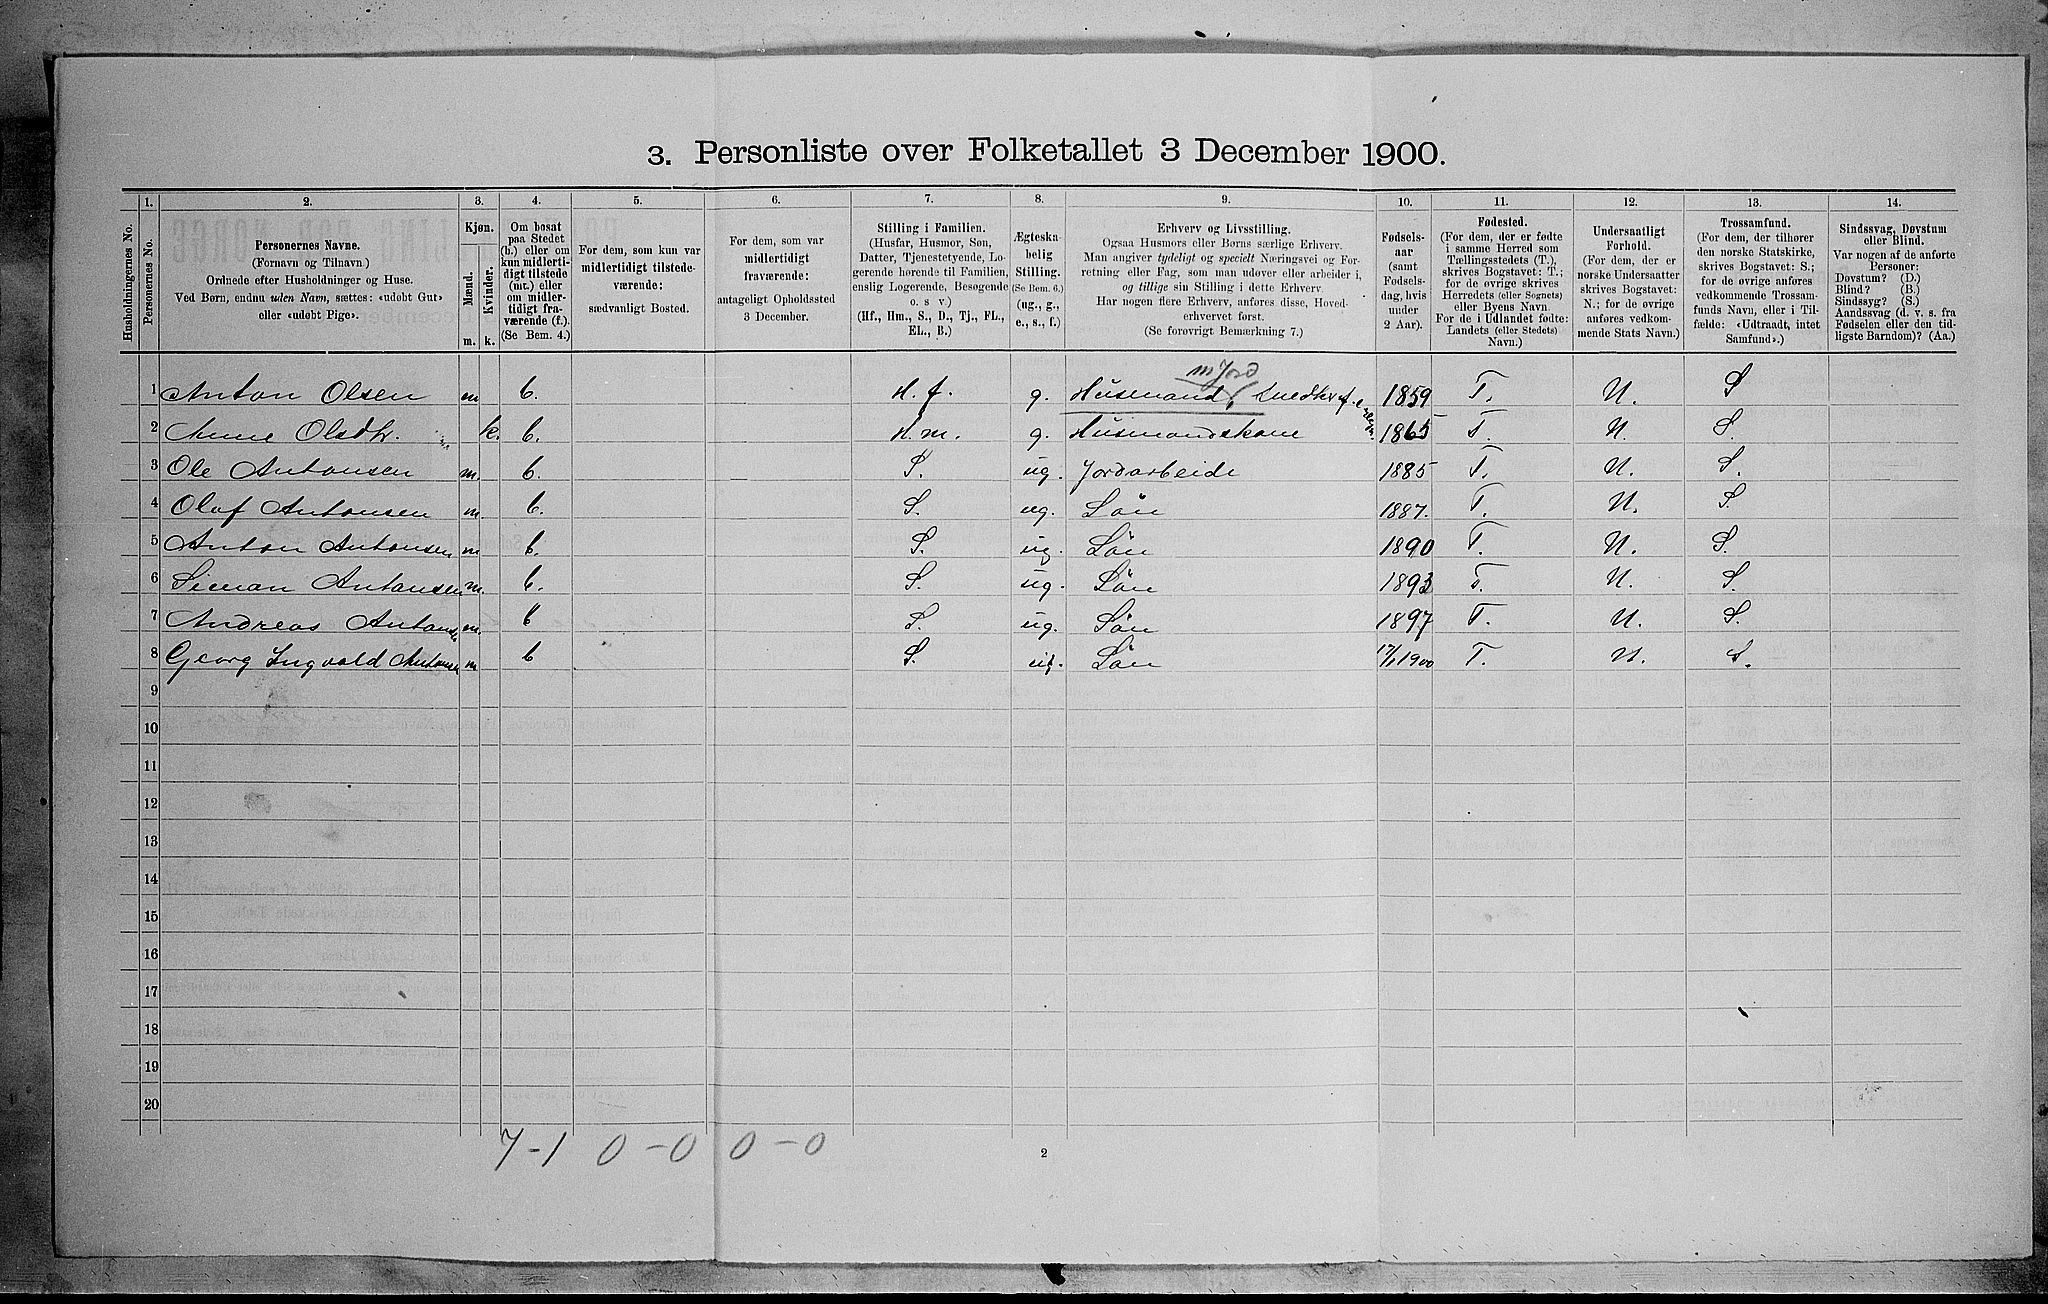 3. Personliste over Folketallet 3 December 1900.
Husholdningernes No.
1. Personernes No.
2. Personernes Navne.
(Fornavn og Tilnavn.)
Ordnede efter Husholdninger og Huse.
Ved Børn, endnu uden Navn, sættes: «udøbt Gut»
eller «udøbt Pige».
3. Kjøn.
Mænd. Kvinder.
m. k.
4. Om bosat
paa Stedet
(b.) eller om
kun midlerti-
digt tilstede
(mt.) eller
om midler-
tidigt fra-
værende (f.).
(Se Bem. 4.)
5. For dem, som kun var
midlertidigt tilstede-
værende:
sædvanligt Bosted.
6. For dem, som var
midlertidigt
fraværende:
antageligt Opholdssted
3 December.
7. Stilling i Familien.
(Husfar, Husmor, Søn,
Datter, Tjenestetyende, Lo-
gerende hørende til Familien,
enslig Logerende, Besøgende
o. s. v.)
(Hf., Hm., S., D., Tj., FL.,
EL., B.)
8. Ægteska-
belig
Stilling.
(Se Bem. 6.)
(ug., g.,
e., s., f.)
9. Erhverv og Livsstilling.
Ogsaa Husmors eller Børns særlige Erhverv.
Man angiver tydeligt og specielt Næringsvei og For-
retning eller Fag, som man udøver eller arbeider i,
og tillige sin Stilling i dette Erhverv.
Har nogen flere Erhverv, anføres disse, Hoved-
erhvervet først.
(Se forøvrigt Bemærkning 7.)
10. Fødsels-
aar
(samt
Fødsels-
dag, hvis
under
2 Aar).
11. Fødested.
(For dem, der er fødte
i samme Herred som
Tællingsstedets (T.),
skrives Bogstavet: T.;
for de øvrige skrives
Herredets (eller Sognets)
eller Byens Navn.
For de i Udlandet fødte:
Landets (eller Stedets)
Navn.)
12. Undersaatligt
Forhold.
(For dem, der er
norske Undersaatter
skrives Bogstavet:
N.; for de øvrige
anføres vedkom-
mende Stats Navn.)
13. Trossamfund.
(For dem, der tilhører
den norske Statskirke,
skrives Bogstavet: S.;
for de øvrige anføres
vedkommende Trossam-
funds Navn, eller i Til-
fælde: «Udtraadt, intet
Samfund».)
14. Sindssvag, Døvstum
eller Blind.
Var nogen af de anførte
Personer:
Døvstum? (D.)
Blind? (B.)
Sindssyg? (S.)
Aandssvag (d. v. s. fra
Fødselen eller den tid-
ligste Barndom)? (Aa.)
m Jord
1 Anton Olsen m b. H. f. g. Husmand 1859 T. N. S
2 Anne Olsdtr. k. b. H. m. g. Husmandskone 1865 T. N. S.
3 Ole Antonsen m. b. S. ug. Jordarbeide 1885 T. N. S.
4 Olaf Antonsen m. b. S. ug. Søn 1887. T. N. S.
5 Anton Antonsen m b. S. ug. Søn 1890 T. N. S.
6 Simon Antonsen m. b. S. ug. Søn 1893 T. N. S
7 Andreas Antons m. b S. ug. Søn 1897 T. N. S.
8 Georg Ingvald Antonsen m b S. ug. Søn 17/1 1900 T. N. S.
9
10
11
12
13
14
15
16
17
18
19
20
7-1 0-0 0-0
2